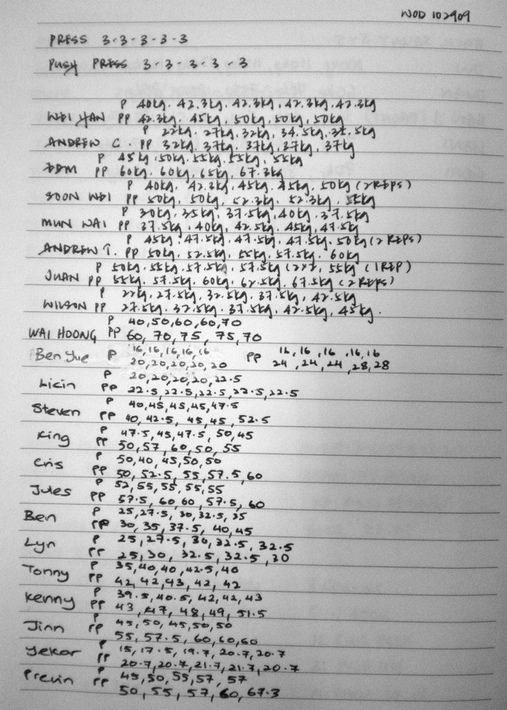 WOD 102909
PRESS 3-3-3-3-3
PUSH PRESS 3-3-3-3-3
P 40kg, 42.3kg, 42.3kg, 42.3kg, 42.3kg
WEI HAN PP 42.3kg, 45kg, 50kg, 50kg, 50kg
P 22kg, 27kg, 32kg, 34.5kg, 34.5kg
ANDREW C. PP 32kg, 37kg, 37kg, 37kg, 37kg
P 45kg, 50kg, 55kg, 55kg, 55kg
PP 60kg, 60kg, 65kg, 67.3kg
P 40kg, 42.3kg, 45kg, 45kg, 50kg (2 REPS)
SOON WEI PP 50kg, 50kg, 52.3kg, 52.3kg, 55kg
P 30kg, 35kg, 37.5kg, 40kg, 37.5kg
MUN WAI PP 37.5kg, 40kg, 42.5kg, 45kg, 47.5kg
P 45kg, 47.5kg, 47.5kg, 47.5kg, 50kg (2 REPS)
ANDREW T. PP 50kg, 52.5kg, 55kg, 57.5kg, 60kg
P 50kg, 55kg, 57.5kg, 57.5kg (2x2, 55kg (1 REP)
JUAN PP 55kg, 57.5kg, 60kg, 62.5kg, 67.5kg (2 REPS)
P 22kg, 27.5kg, 32.5kg, 37.5kg, 42.5kg
WILSON PP 27.5kg, 32.5kg, 37.5kg, 42.5kg, 45kg.
P 40,50,60,60,70
WAI HOONG PP 60, 70, 75, 75, 70
Ben Yue P 16,16,16,16,16 PP 16, 16, 16, 16, 16
20,20,20,20,20 24, 24, 24, 28, 28
Licin P 20,20,20,20,22.5
PP 22.5,22.5,22.5,22.5,22.5
Steven P 40,45,45,45,47.5
PP 40, 42.5, 45, 45, 52.5
King P 47.5, 45, 47.5, 50, 45
PP 50, 57, 60, 50, 55
Cris P 50, 40, 45, 50, 50
PP 50, 52.5, 55, 57.5, 60
Jules P 52, 55, 55, 55, 55
PP 57.5, 60, 60, 57.5, 60
Ben P 25, 27.5, 30, 32.5, 35
PP 30, 35, 37.5, 40, 45
Lyn P 25, 27.5, 30, 32.5, 32.5
PP 25, 30, 32.5, 32.5, 30
Tonny P 35, 40, 40, 42.5, 40
PP 42, 42, 43, 42, 42
Kenny P 39.5, 40.5, 42, 42, 43
PP 43, 47, 48, 49, 51.5
Jinn P 45, 50, 45, 50, 50
PP 55, 57.5, 60, 60, 60
Yekar P 15, 17.5, 19.7, 20.7, 20.7
PP 20.7, 20.7, 21.7, 21.7, 20.7
Previn P 45, 50, 55, 57, 57
PP 50, 55, 57, 60, 67.3